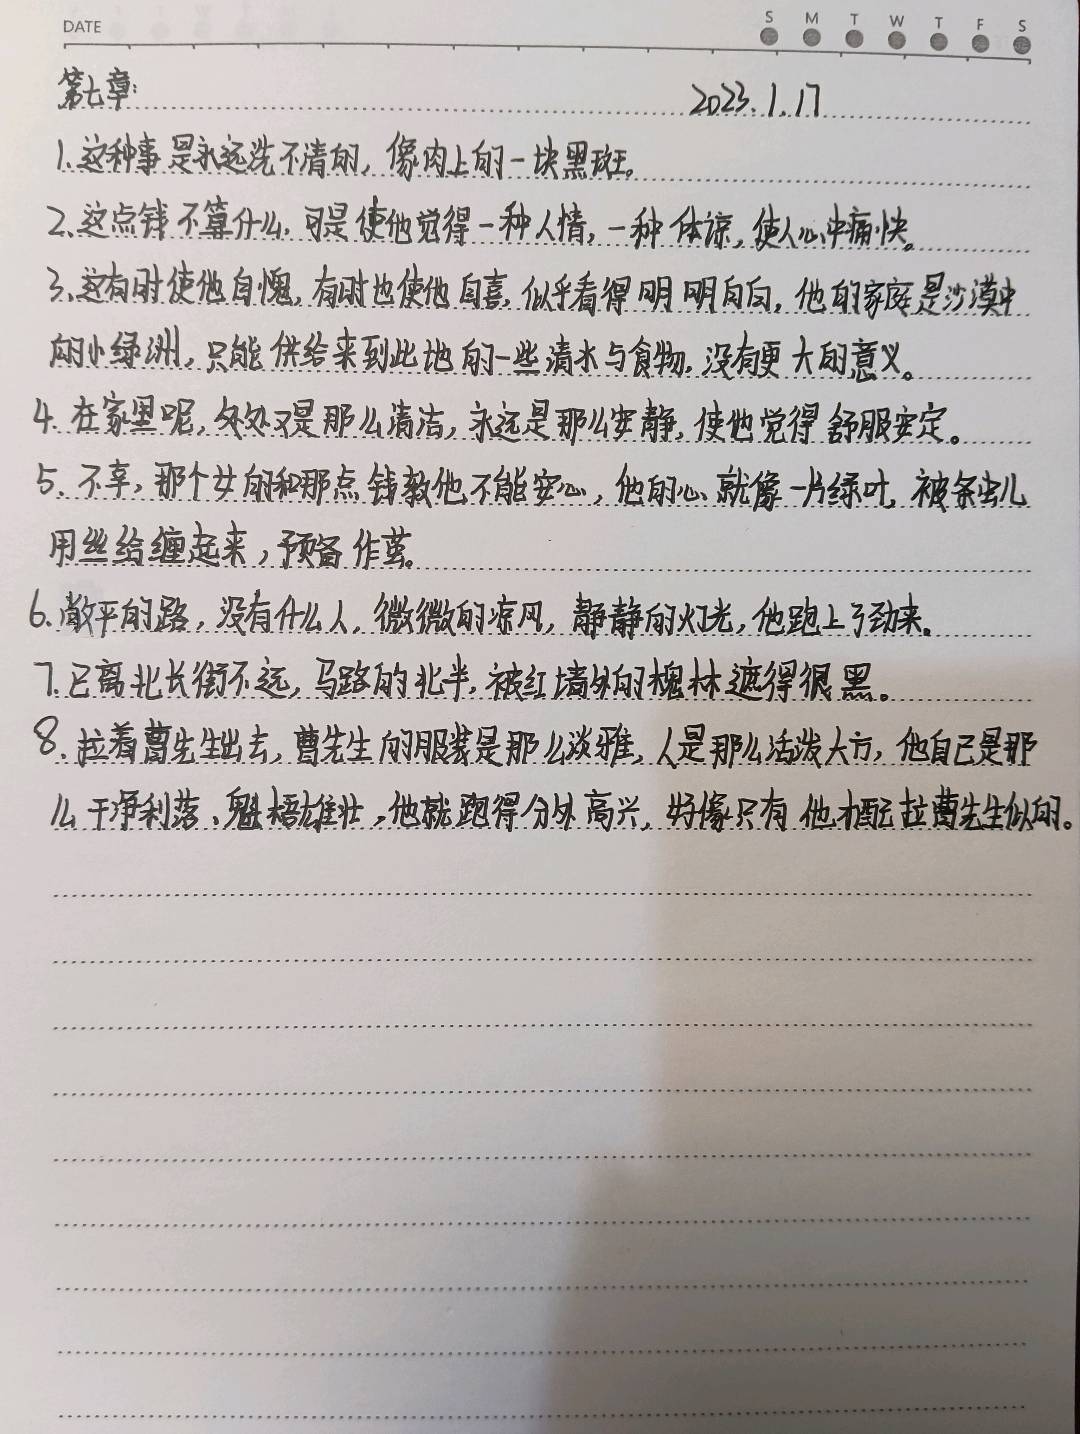 DATE
S M T W T F S
第七章: 2023.1.17
1.这种事是永远洗不清的,像肉上的一块黑斑。
2.这点钱不算什么,可是使他觉得一种人情,一种体谅,使人心中痛快。
3.这有时使他自愧,有时也使他自喜,似乎看得明明白白,他的家庭是沙漠中
的小绿洲,只能供给来到此地的一些清水与食物,没有更大的意义。
4.在家里呢,处处又是那么清洁,永远是那么安静,使他觉得舒服安定。
5.不享,那个女的和那点钱教他不能安心,他的心就像一片绿叶,被条虫儿
用丝给缠起来,预备作茧。
6.敞平的路,没有什么人,微微的凉风,静静的灯光,他跑上了劲来。
7.已离北长街不远,马路的北半,被红墙外的槐林遮得很黑。
8.拉着曹先生出去,曹先生的服装是那么淡雅,人是那么活泼大方,他自己是那
么干净利落、魁梧雄壮,他就跑得分外高兴,好像只有他才配拉曹先生似的。